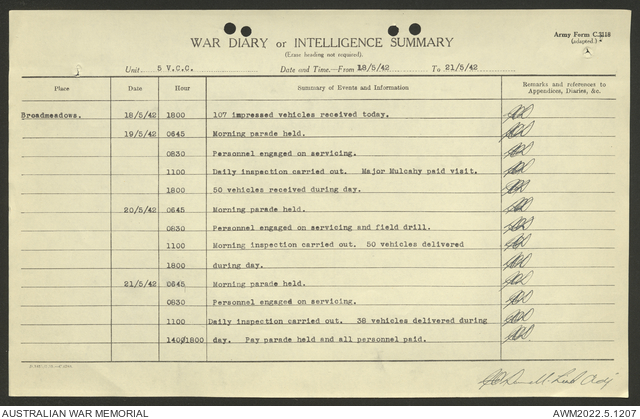 WAR DIARY or INTELLIGENCE SUMMARY
(Erase heading not required).
Army Form C.2118
(adapted.)
Unit 5 V.C.C. Date and Time—From 18/5/42 To 21/5/42
Place Date Hour Summary of Events and Information Remarks and references to Appendices, Diaries, &c.
Broadmeadows. 18/5/42 1800 107 impressed vehicles received today.
19/5/42 0645 Morning parade held.
0830 Personnel engaged on servicing.
1100 Daily inspection carried out. Major Mulcahy paid visit.
1800 50 vehicles received during day.
20/5/42 0645 Morning parade held.
0830 Personnel engaged on servicing and field drill.
1100 Morning inspection carried out. 50 vehicles delivered
1800 during day.
21/5/42 0645 Morning parade held.
0830 Personnel engaged on servicing.
1100 Daily inspection carried out. 38 vehicles delivered during
1400/1800 day. Pay parade held and all personnel paid.
AUSTRALIAN WAR MEMORIAL AWM2022.5.1207